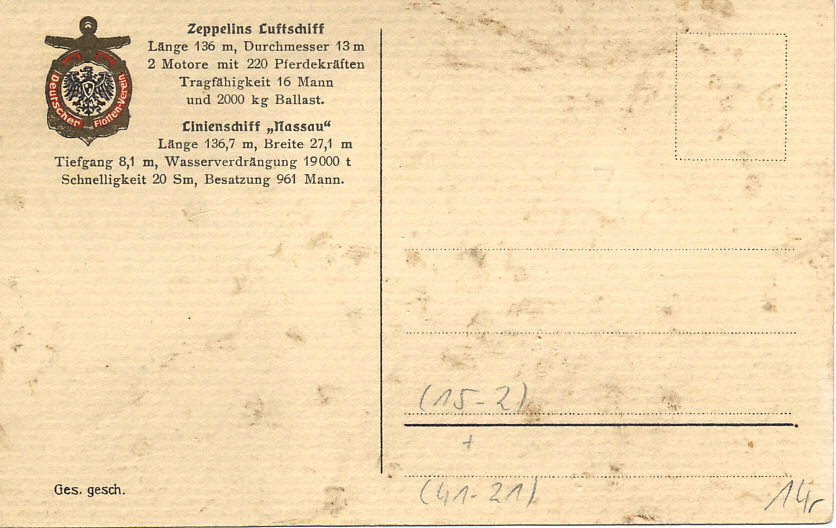 Deutscher Flotten-Verein
Zeppelins Luftschiff
Länge 136 m, Durchmesser 13 m
2 Motore mit 220 Pferdekräften
Tragfähigkeit 16 Mann
und 2000 kg Ballast.
Linienschiff „Nassau“
Länge 136,7 m, Breite 27,1 m
Tiefgang 8,1 m, Wasserverdrängung 19000 t
Schnelligkeit 20 Sm, Besatzung 961 Mann.
(15-2)
+
(41-21)
14,-
Ges. gesch.